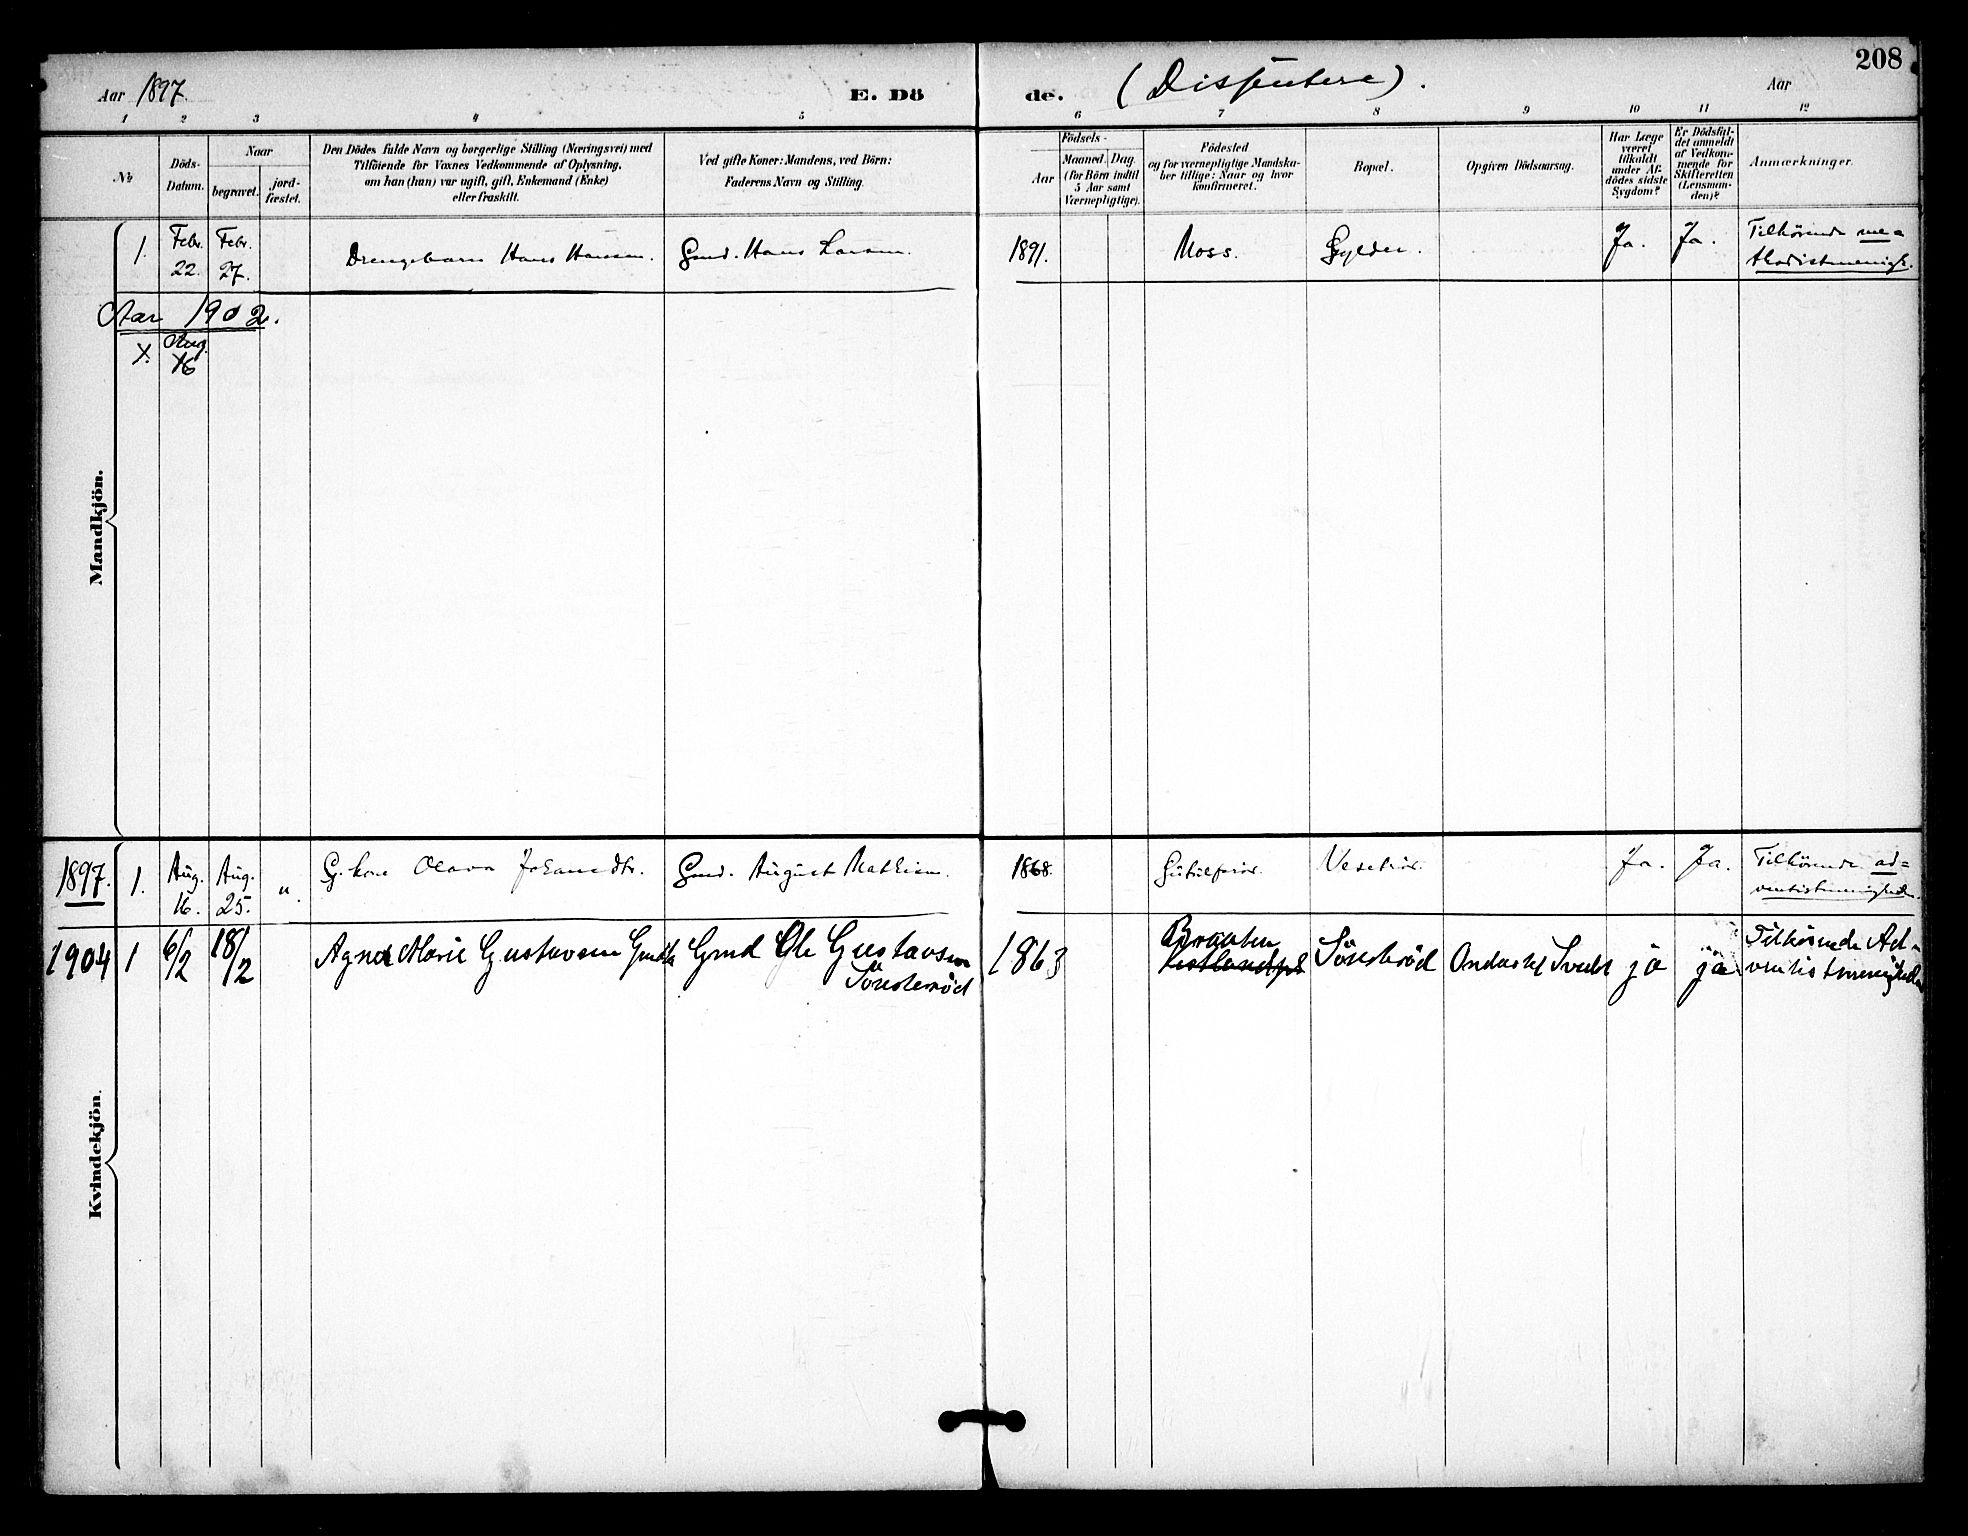 208
Aar 1897. E. Dö de. (Dissentere). Aar
1 2 3 4 5 6 7 8 9 10 11 12
№
Döds-
Datum.
Naar
begravet.
jord-
fæstet.
Den Dödes fulde Navn og borgerlige Stilling (Næringsvei) med
Tilföiende for Voxnes Vedkommende af Oplysning,
om han (hun) var ugift, gift, Enkemand (Enke)
eller fraskilt.
Ved gifte Koner: Mandens, ved Börn:
Faderens Navn og Stilling.
Födsels-
Aar
Maaned. Dag.
(for Börn indtil
5 Aar samt
Værnepligtige).
Födested
og for værnepligtige Mandska-
ber tillige: Naar og hvor
konfirmeret.
Bopæl.
Opgiven Dödsaarsag.
Har Læge
været
tilkaldt
under Af-
dödes sidste
Sygdom?
Er Dödsfal-
det anmeldt
af Vedkom-
mende for
Skifteretten
(Lensman-
den)?
Anmærkninger.
Mandkjön.
1. Febr. 22. Febr. 27. Drengebarn Hans Hansen. Gmd. Hans Larsen. 1891. Moss. Gylder. Ja. Ja. Tilhörende me=
thodistmenigh.
Aar 1902.
Aug.
16
Kvindekjön.
1897. 1. Aug. 16. Aug. 25. " G. kone Olava Johansdtr. Gmd. August Mathisen. 1868. Ja. Ja. Tilhörende ad=
ventistmenigheden.
1904 1 6/2 18/2 Agnes Marie Gustavsen Gmd Ole Gustavsen
1863 Braaten ja ja Tilhörende Ad-
ventistmenigheden